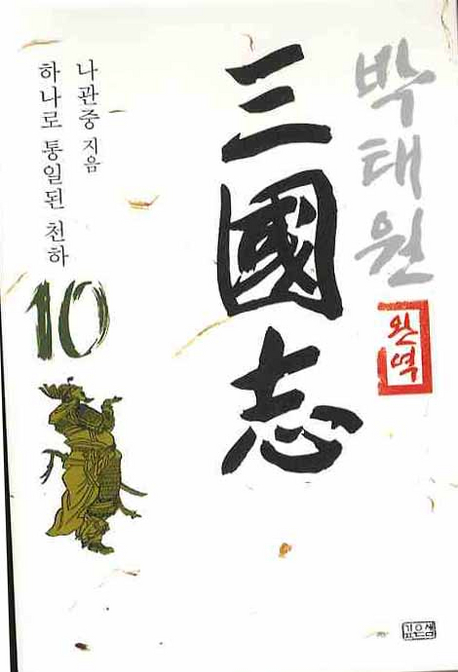 박태원
완역
三國志
나관중 지음
하나로 통일된 천하
10
깊은샘